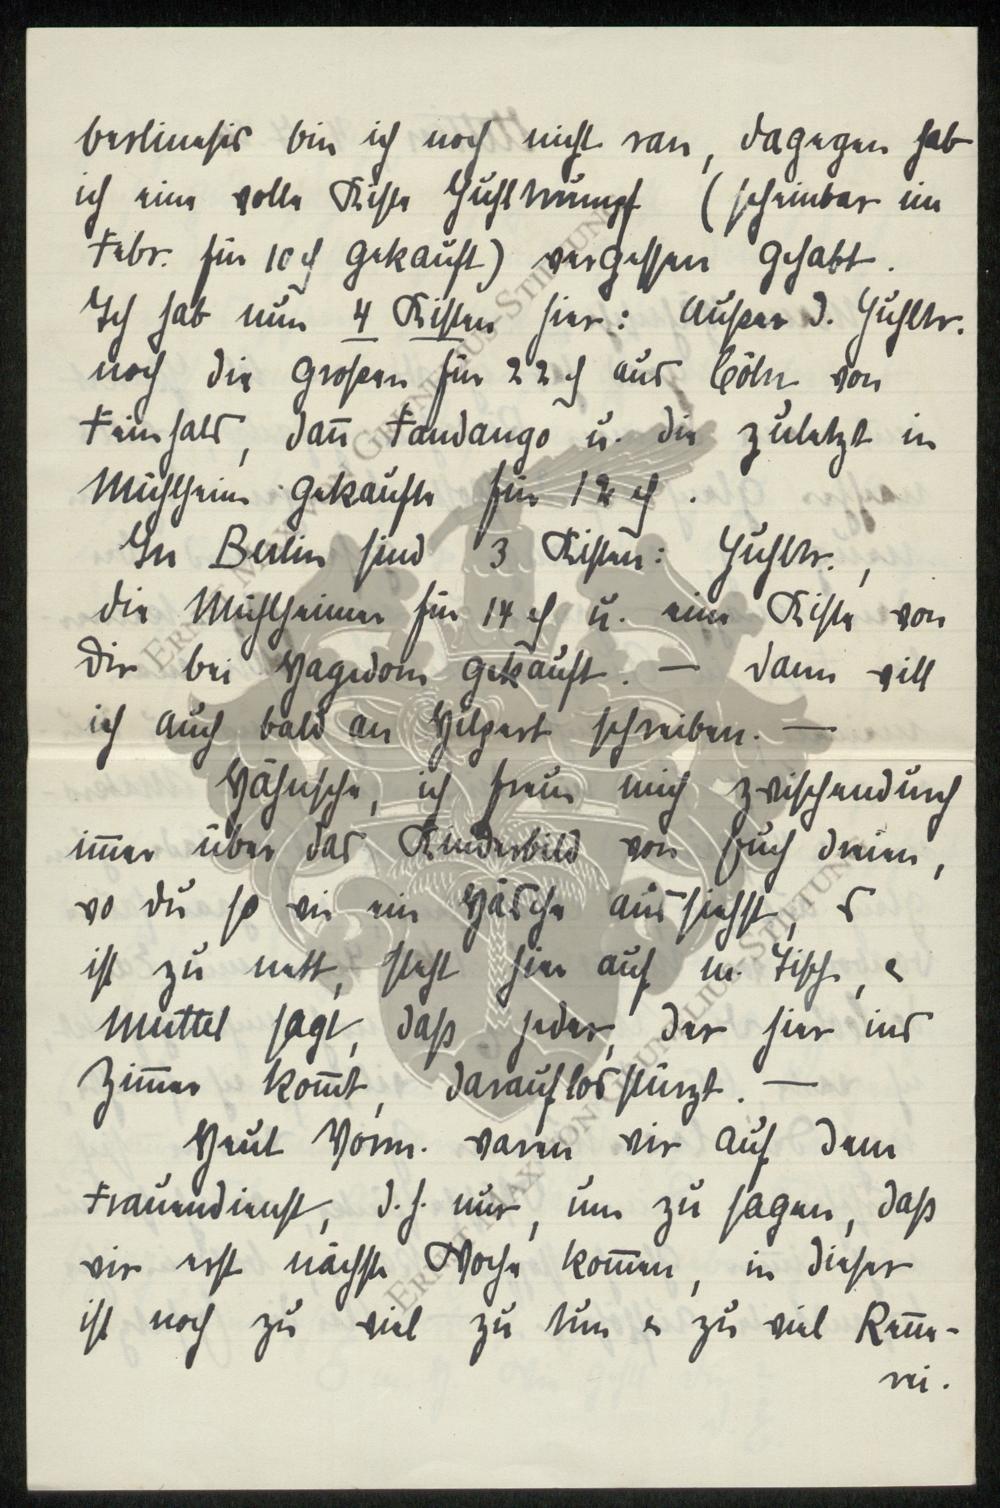 bin ich noch nicht ran, dagegen hab
ich eine volle Kiste (scheinbar im
Febr. für 10 ₰ gekauft) vergessen gehabt.
Ich hab nun 4 Kisten hier: Außer d.
noch die großen für 22 ₰ aus Cöln von
Feinhals, dann Fandango u. die zuletzt in
Mühlheim gekaufte für 12 ₰.
In Berlin sind 3 Kisten:
die Mühlheimer für 14 ₰ u. eine Kiste von
Dir bei Hagedorn gekauft. — Dann will
ich auch bald an Hilpert schreiben. —
Hähnsche, ich freue mich zwischendurch
immer über das Kinderbild von Euch dreien,
wo du so wie ein Häsche aussiehst, es
ist zu nett, steht hier auf m. Tisch, u
Muttel sagt, daß jeder, der hier ins
Zimmer kommt, darauflosstürzt. —
Heut Vorm. waren wir auf dem
Frauendienst, d.h. nur, um zu sagen, daß
wir erst nächste Woche kommen, in dieser
ist noch zu viel zu tun u zu viel Renne-
rei.
ERNST MAXIMILIAN STIFTUNG